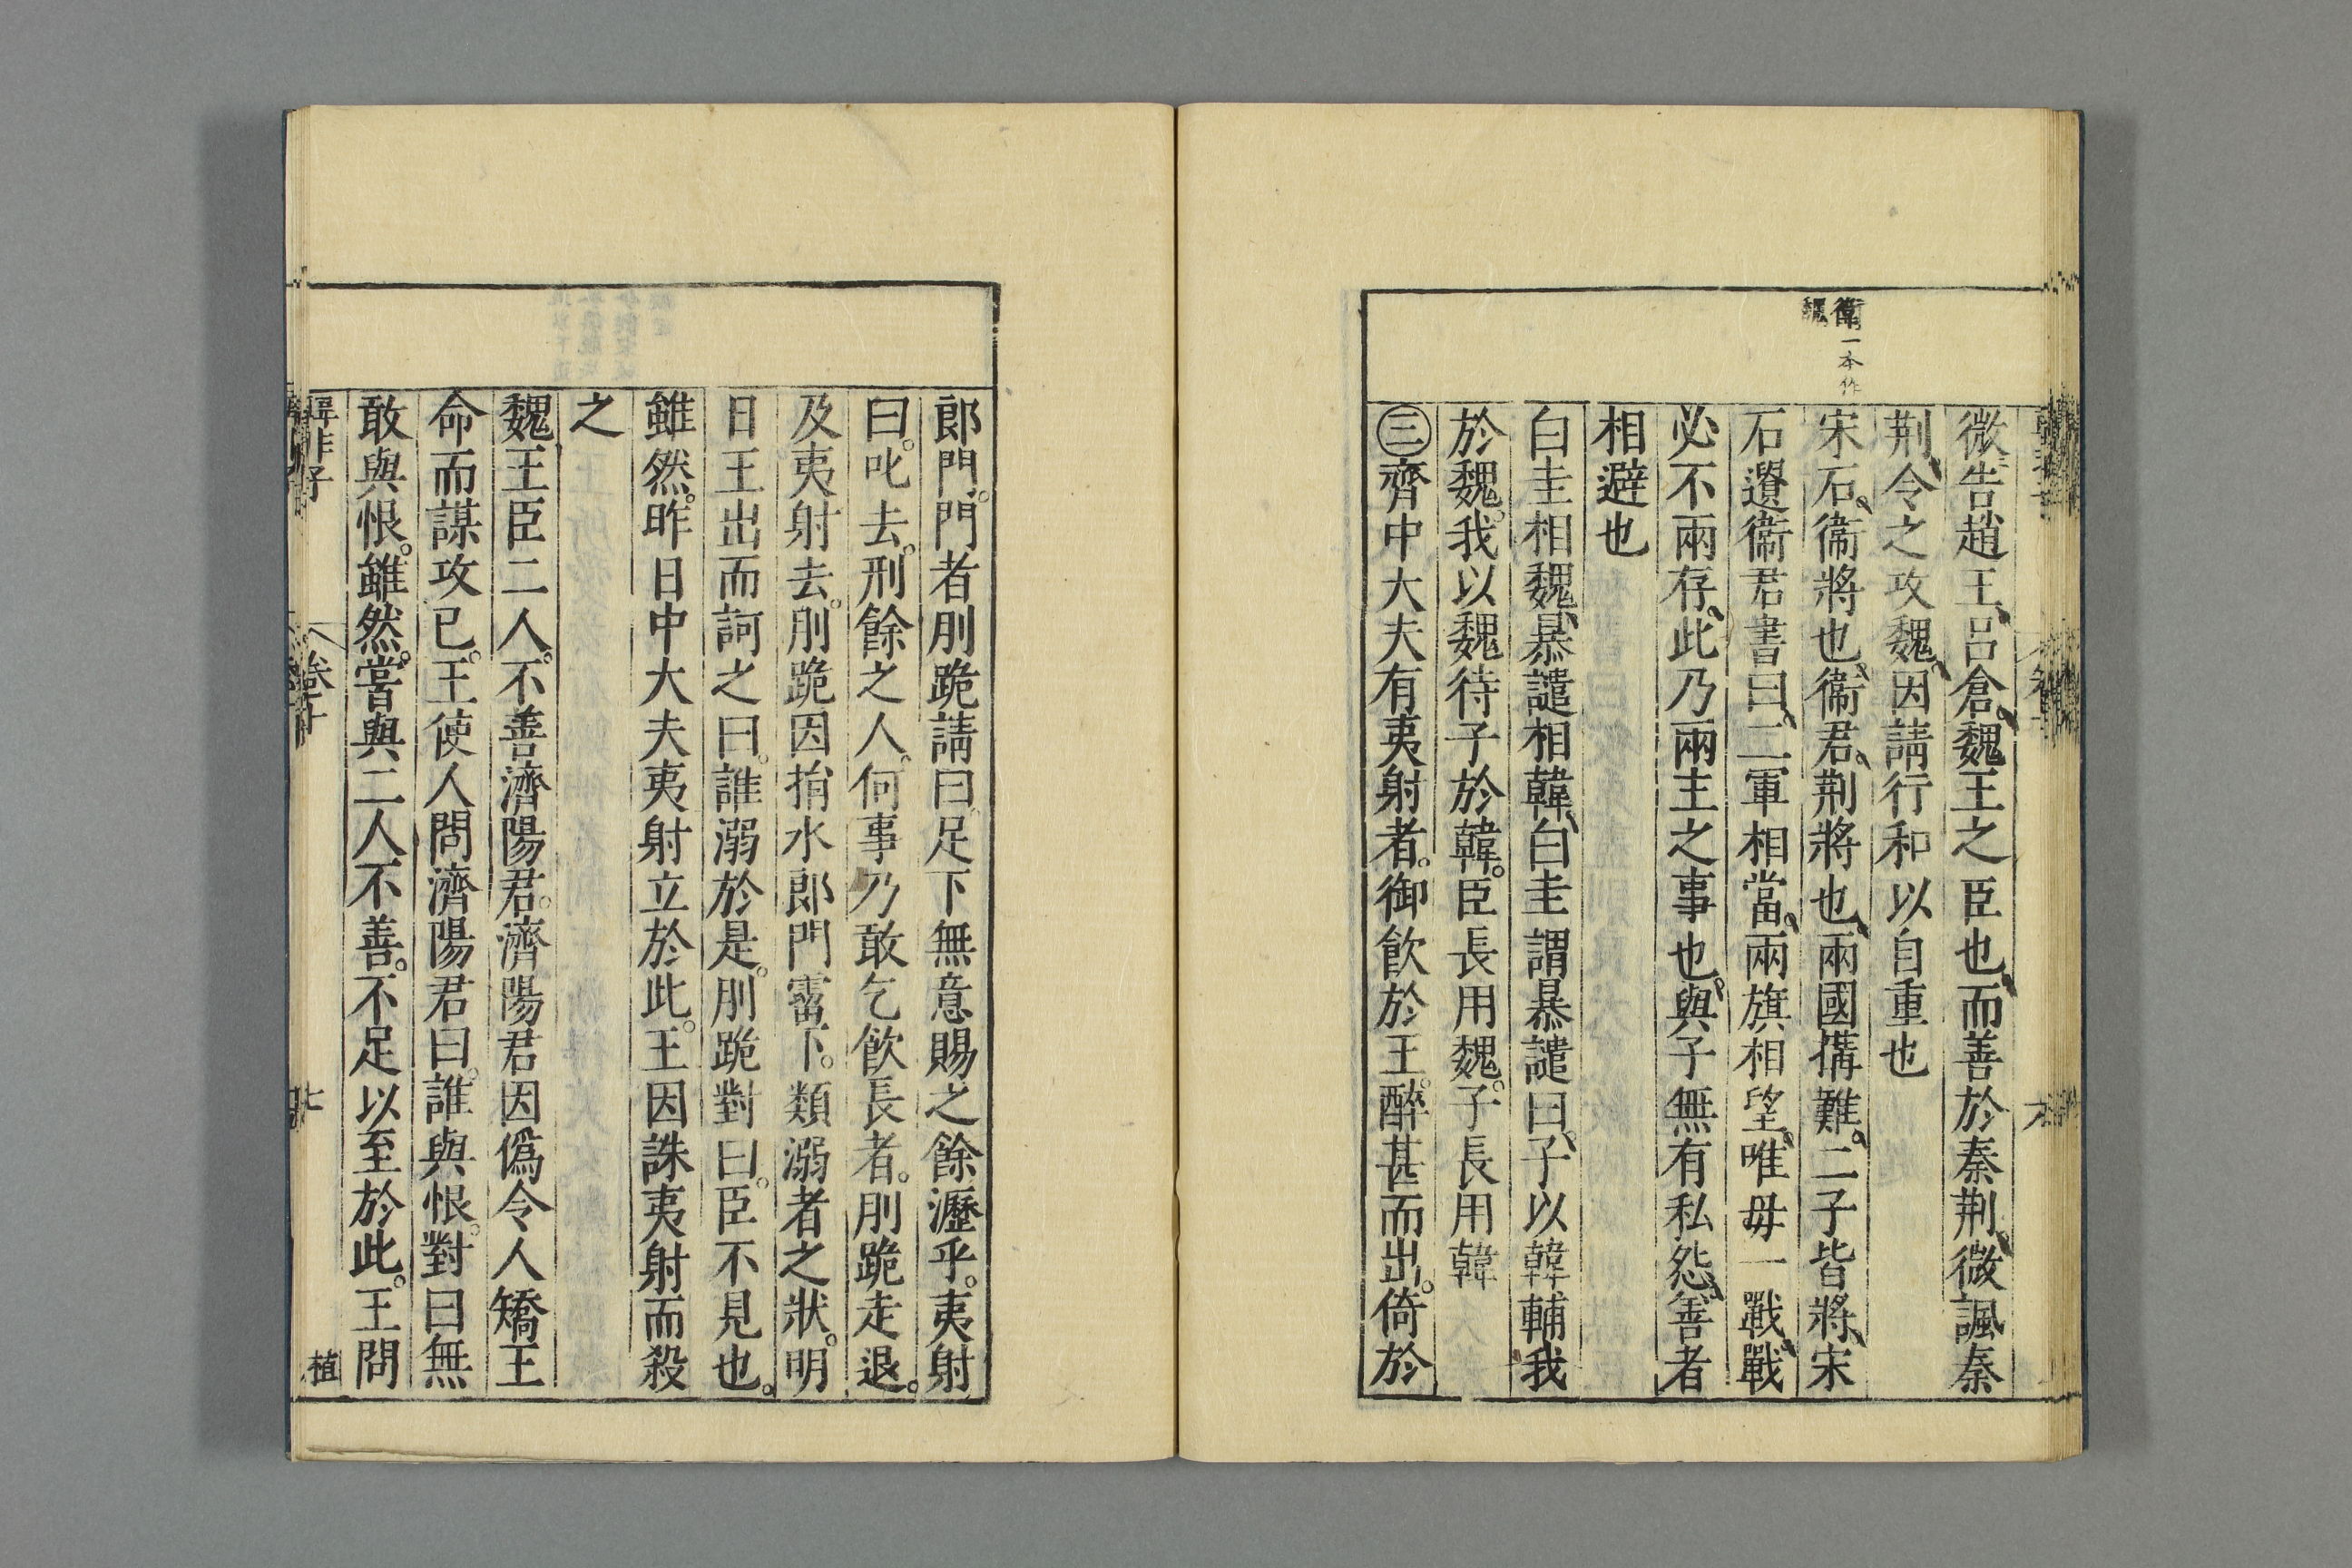 衛一本作
魏
微告趙王、呂倉、魏王之臣也、而善於秦荆、微諷秦
荆、令之攻魏、因請行和以自重也
宋石、衞將也、衞君、荆將也、兩國搆難、二子皆將、宋
石遺衞君書曰、二軍相當、兩旗相望、唯毋一戰、戰
必不兩存、此乃兩主之事也、與子無有私怨、善者
相避也
白圭相魏、暴譴相韓、白圭謂暴譴曰、子以韓輔我
於魏。我以魏待子於韓。臣長用魏。子長用韓
㊂齊中大夫有夷射者。御飲於王。醉甚而出。倚於
郎門。門者刖跪請曰、足下無意賜之餘瀝乎。夷射
曰。叱去。刑餘之人。何事乃敢乞飲長者。刖跪走退。
及夷射去。刖跪因捐水郎門霤下。類溺者之狀。明
日王出而訶之曰。誰溺於是。刖跪對曰。臣不見也。
雖然。昨日中大夫夷射立於此。王因誅夷射而殺
之
魏王臣二人。不善濟陽君。濟陽君因僞令人矯王
命而謀攻已。王使人問濟陽君曰。誰與恨。對曰無
敢與恨。雖然。嘗與二人不善。不足以至於此。王問
韓非子 卷十 七 植